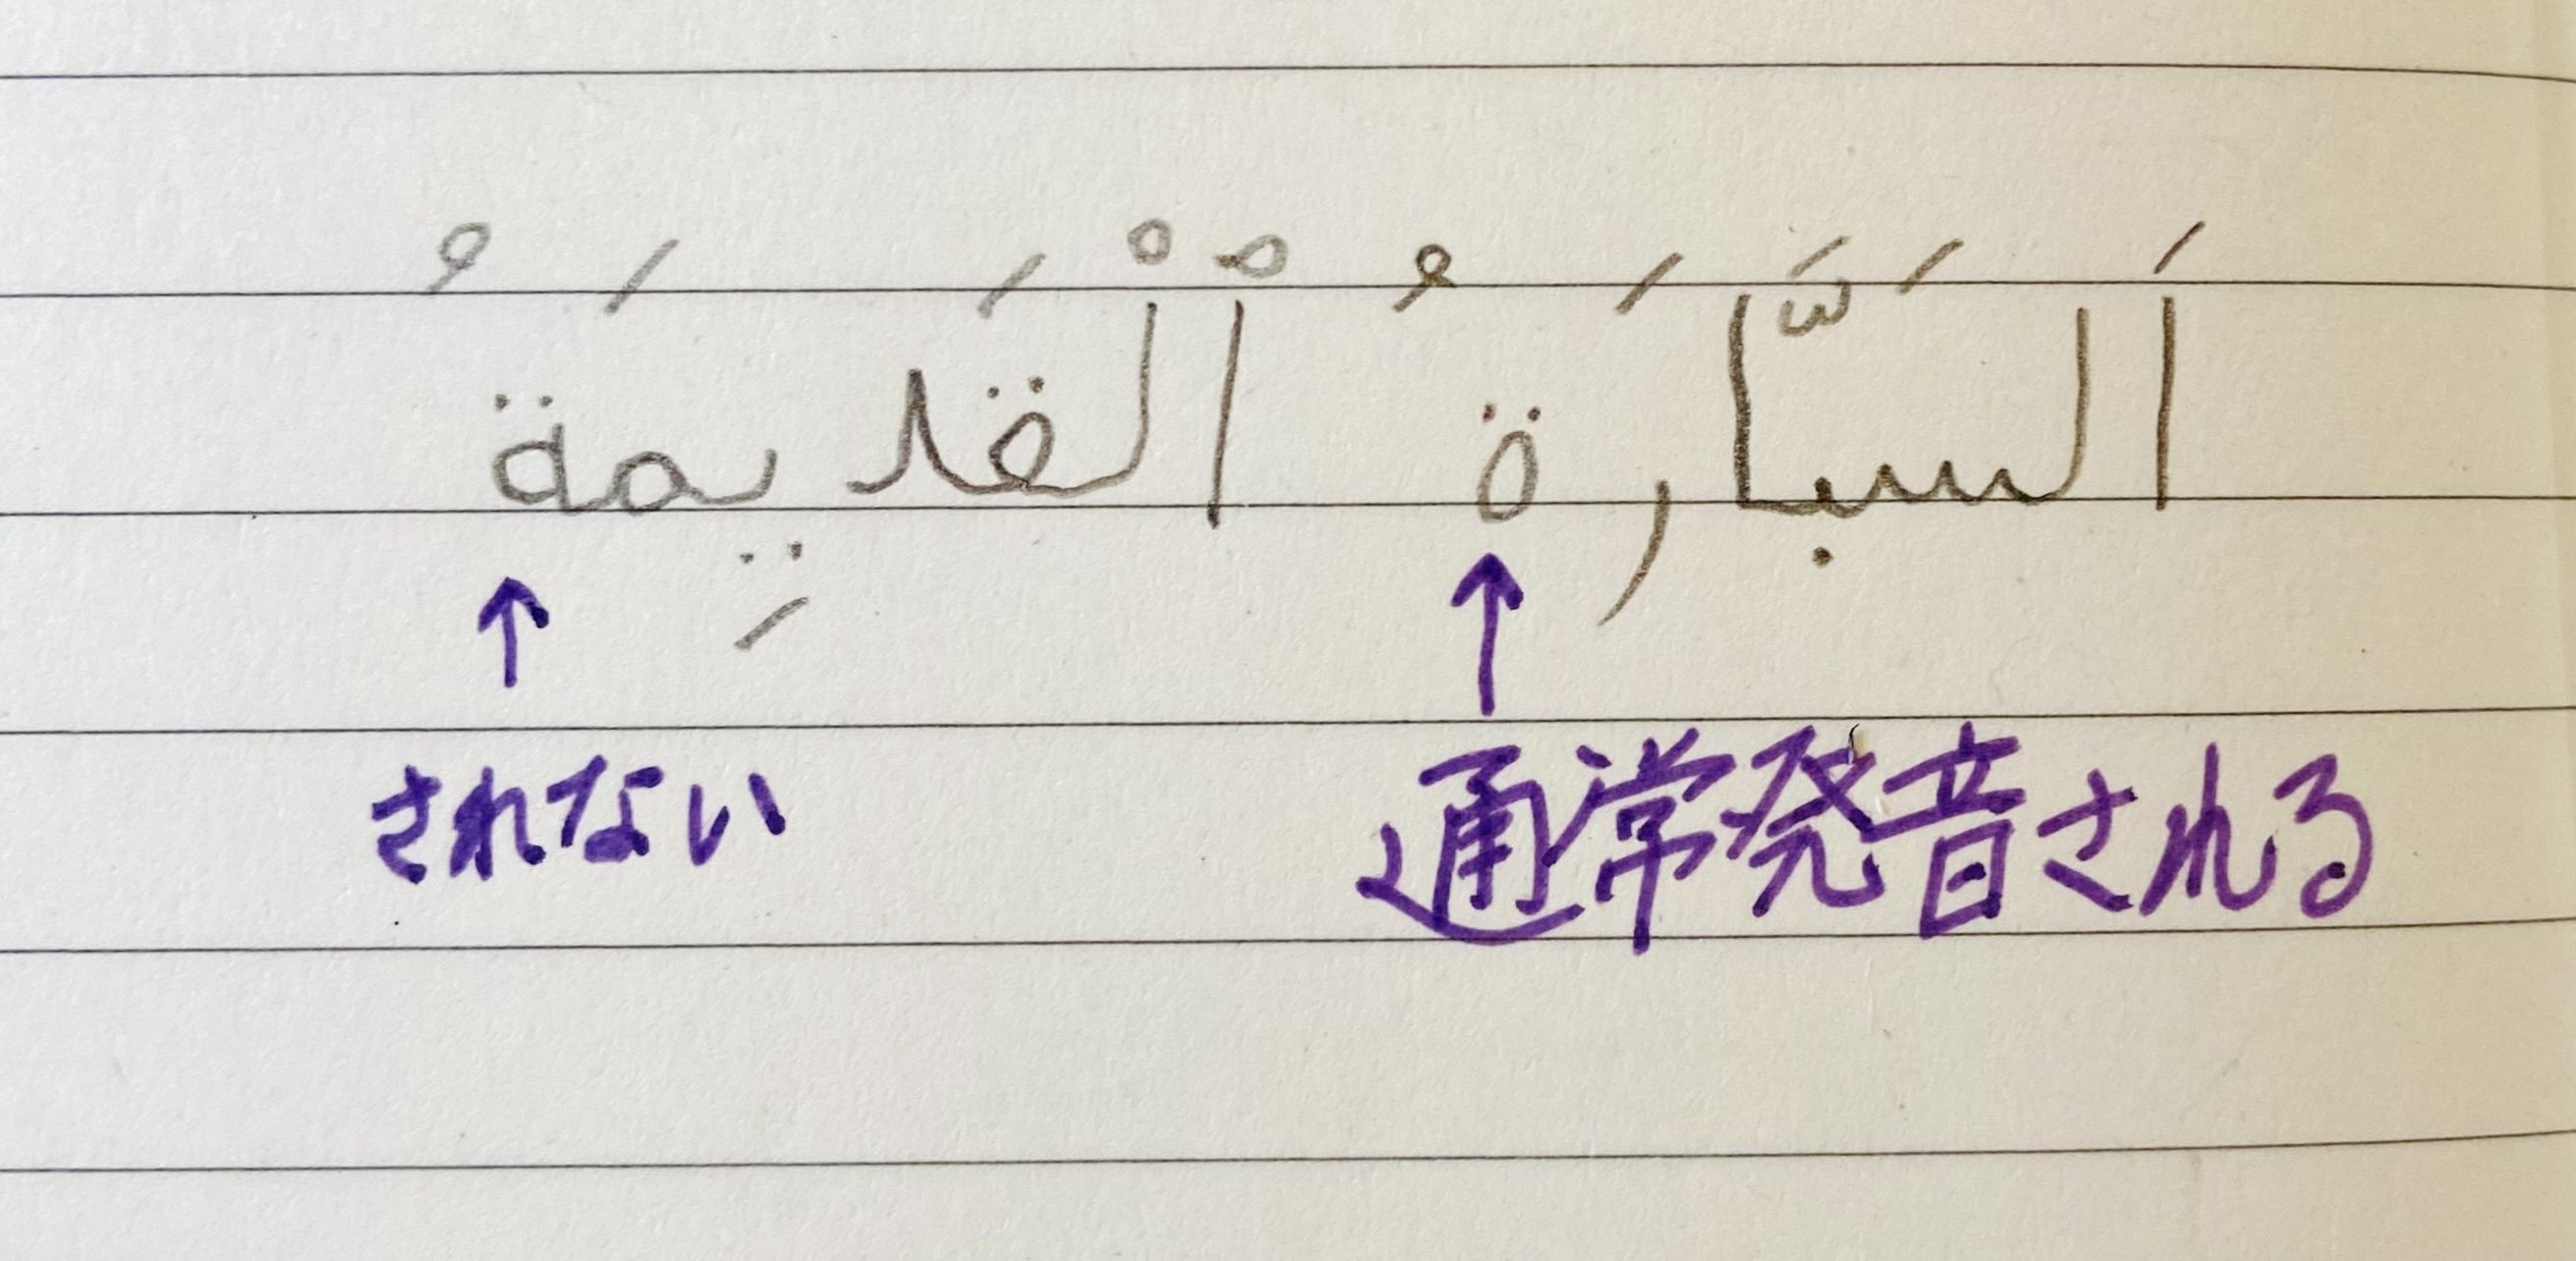 اَلسَبَّارَةُ ٱلْقَدِيمَةُ
通常発音される
されない